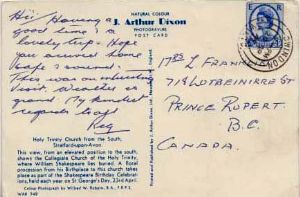 NATURAL COLOUR
J. Arthur Dixon
PHOTOGRAVURE
POST CARD
Hi! Having a
good time & a
lovely trip. Hope
you arrived home
safe & sound.
This was an interesting
Visit. Weather is
grand. My kindest
regards to all
Reg
MRS L. FRANK
718 LOTBENIERE ST
PRINCE RUPERT.
B.C.
CANADA.
Holy Trinity Church from the South,
Stratford-upon-Avon
This view, from an elevated position to the south,
shows the Collegiate Church of the Holy Trinity,
where William Shakespeare lies buried. A floral
procession from his Birthplace to this church takes
place as part of the Shakespeare Birthday Celebra-
tions, held each year on St George's Day, 23rd April.
WAR 940